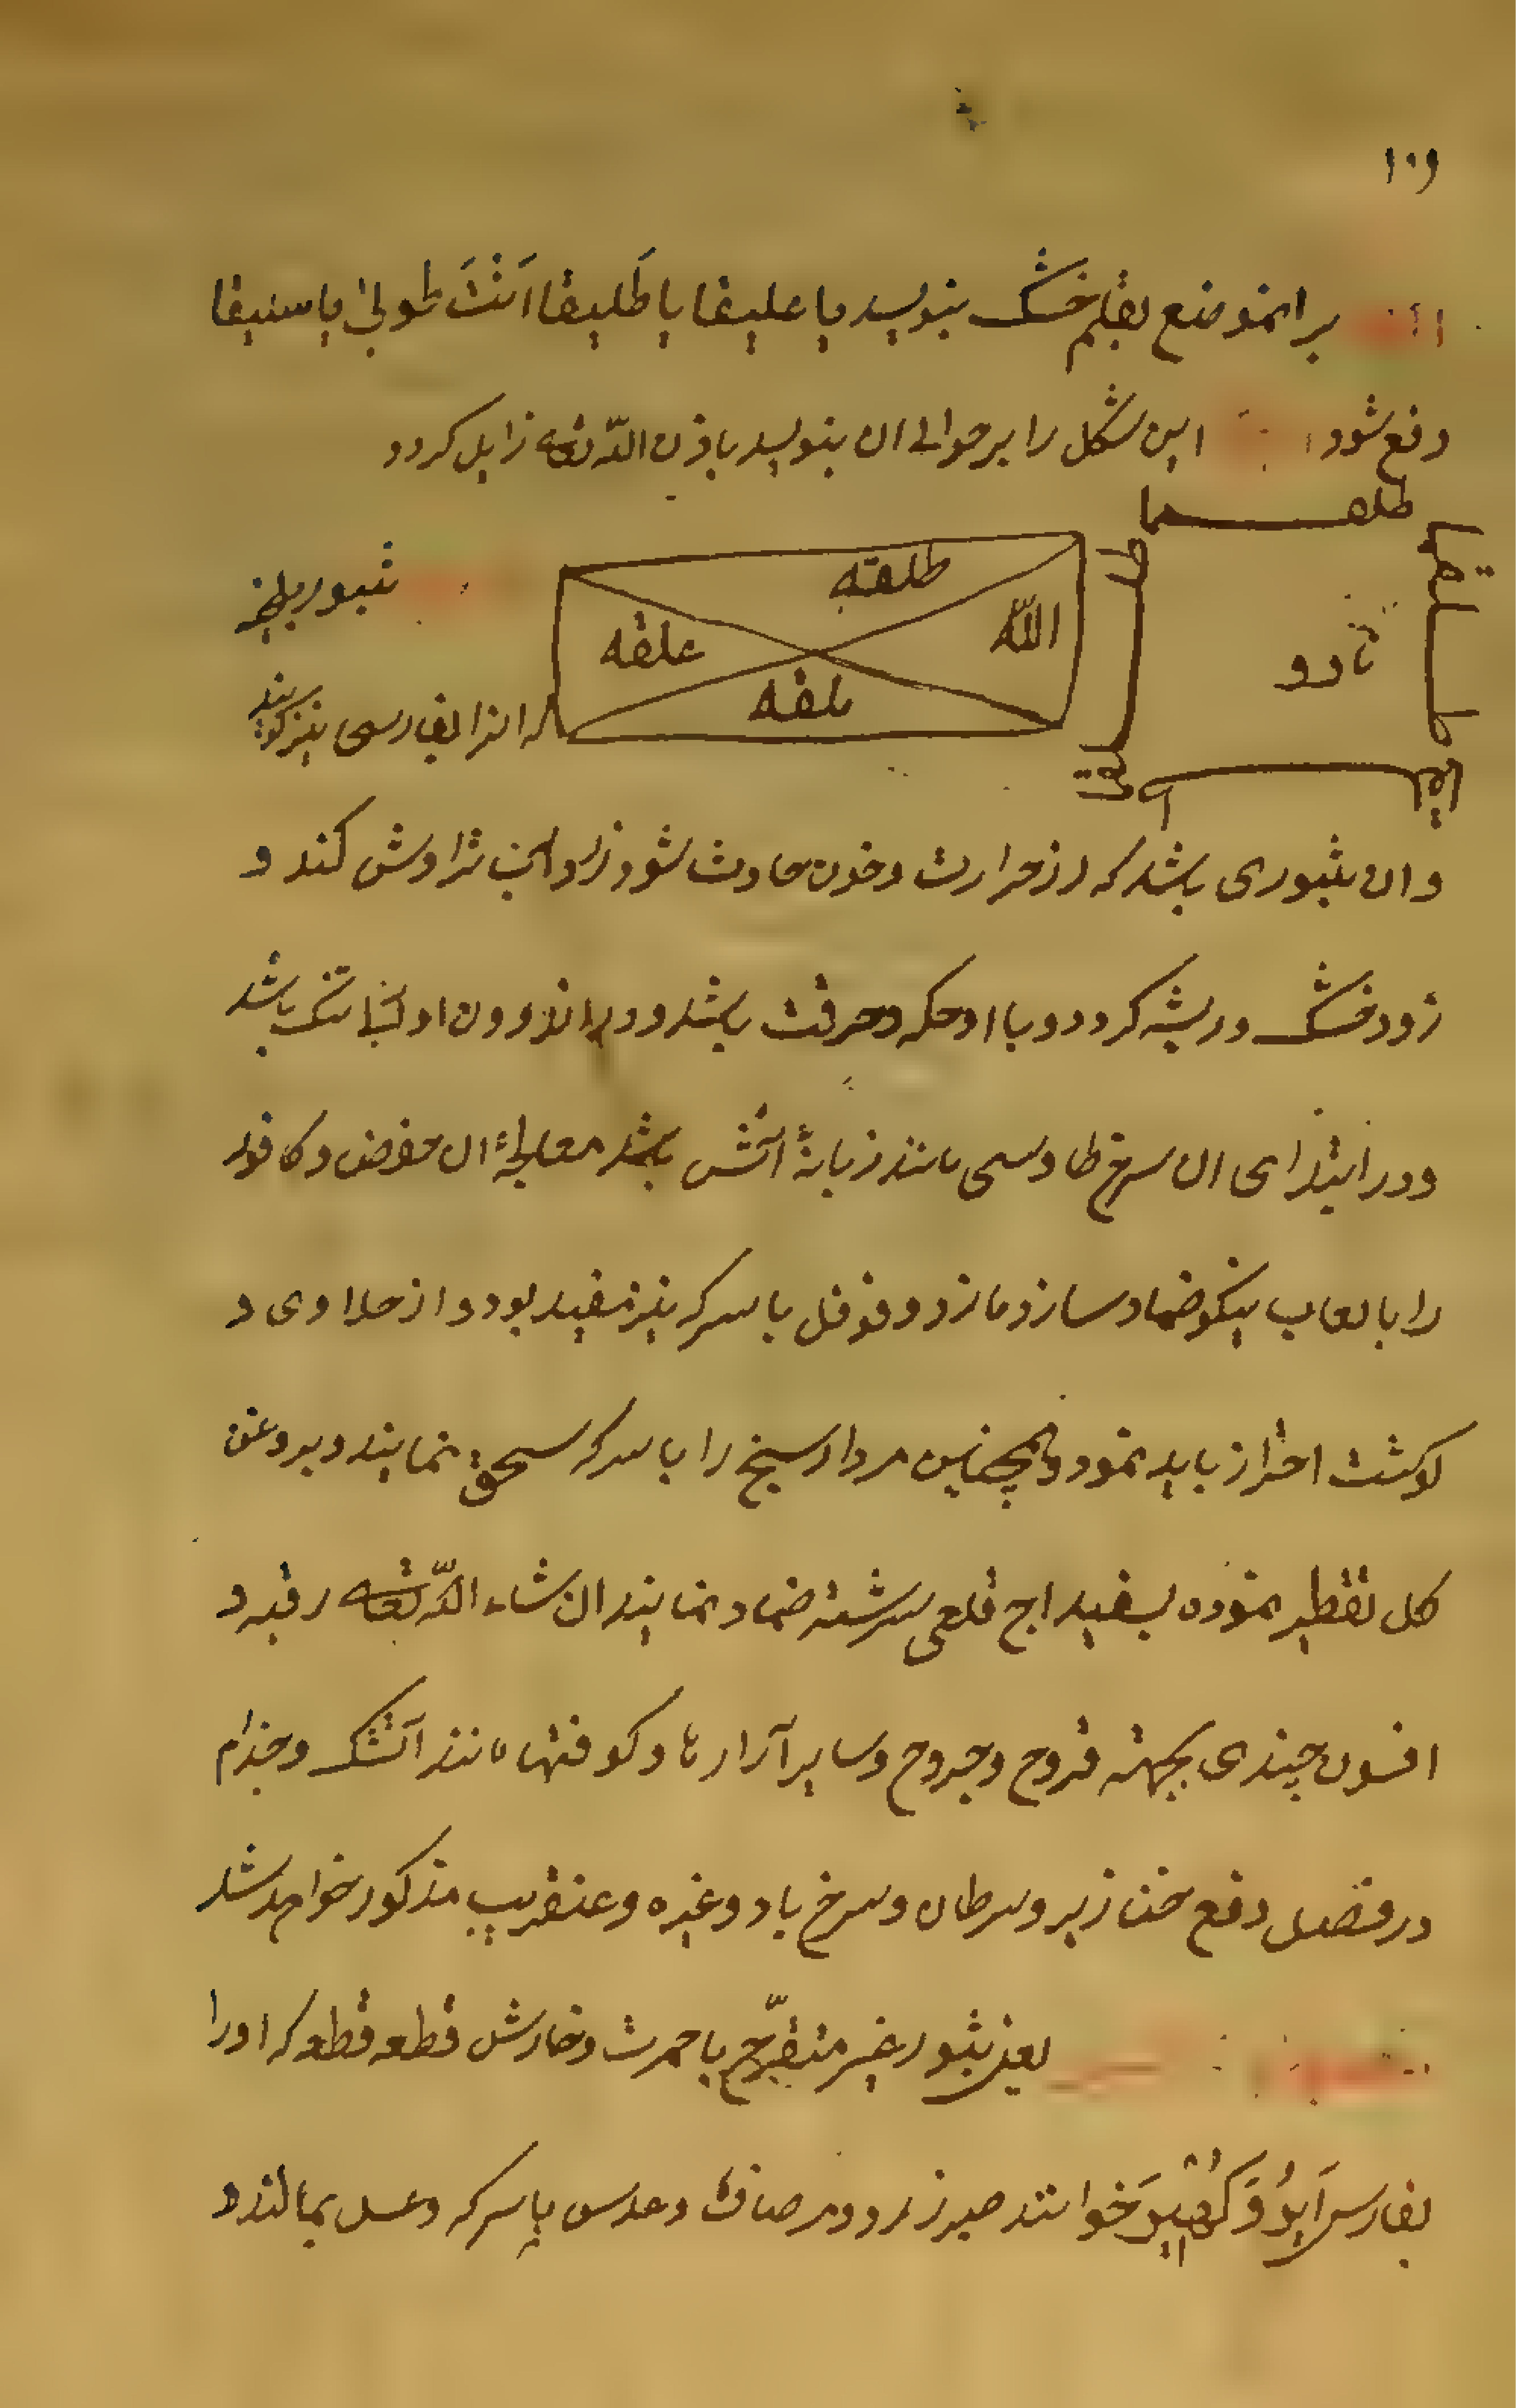 ۱۰۶
بر انموضع بقلم خشک بنویسد یا علیقا یا طَلیقا اَنْتَ طولی یا سنیقا
دفع شود این شکل را بر حوالی ان بنویسد باذن اللّه تعه زایل کردد
طلقه
تادو
طلقه
اللّه
علقه
بلقه
بثور بلخیه
که انرا بفارسی نیز کویند
وان بثوری باشد که از حرارت و خون حادث شود زرداب تراوش کند و
زود خشک و ریشه کردد و با او حکه و حرقت باشد و در اندرون او
ودر ابتدای ان سرخ طاوسی مانند زبانهٔ اتش باشد معالجهٔ ان حضض و کافور
را با لعاب نیکو ضماد سازد مازو و فوفل با سرکه نیز مفید بود و از حلاوی و
کوشت احتراز باید نمود و همچنین مردارسنج را با سرکه سحق نمایند و بروغن
کل تقطیر نموده بسفیداج قلعی سرشته ضماد نمایند ان شاء اللّه تعه رقیه و
افسون چندی بجهته قروح و جروح و سایر آزارها و کوفتها مانند آتشک و جذام
در فصل دفع خنازیر و سرطان و سرخ باد و غیره و عنقریب مذکور خواهد شد
یعنی بثور غیر متقرّح با حمرت و خارش قطعه قطعه که او را
بفارسی خوانند صبر زرد و عدس با سرکه و عسل بمالند و